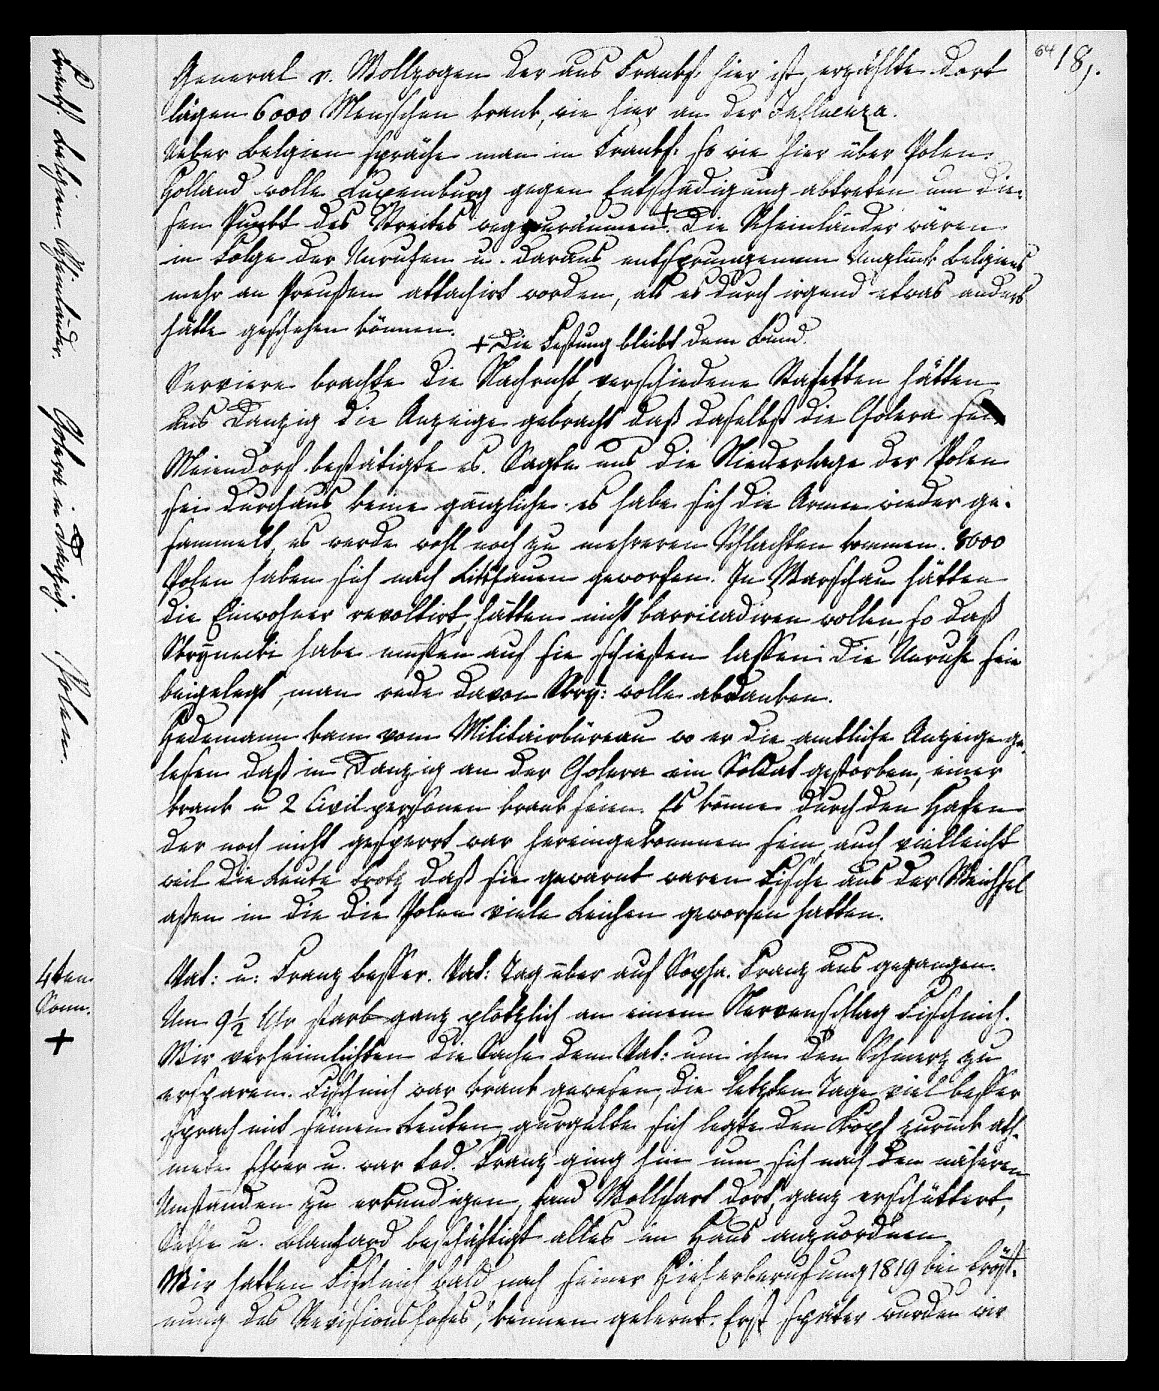 64 18,.
General v. Wollzogen der aus Frankf: hier ist, erzählte dort
lägen 6000 Menschen krank, wie hier an der Influenza.
Ueber Belgien spräche man in Frankf: so wie hier über Polen.
Holland wolle Luxemburg gegen Entschädigung abtreten um die-
sen Punkt des Streites wegzuräumen. + Die Rheinländer wären
in Folge der Unruhen u. daraus entsprungenem Unglück Belgiens
mehr an Preußen attachirt worden, als es durch irgend etwas anders
hätte geschehen können.
+ Die Festung bleibt dem Bund.
Serviere brachte die Nachricht, verschiedene Stafetten hätten
aus Danzig die Anzeige gebracht daß daselbst die Cholera sei
Meiendorf bestätigte es. Sagte uns die Niederlage der Polen
sei durchaus keine gänzliche. es habe sich die Armee wieder ge-
sammelt, es werde wohl noch zu mehreren Schlachten kommen. 8000
Polen haben sich nach Litthauen geworfen. In Warschau hätten
die Einwohner revoltirt, hätten nicht barricadiren wollen, so daß
Skrzynecki habe müssen auf sie schießen lassen. Die Unruhe sei
beigelegt, man rede davon Skrzy: wolle abdanken.
Hedemann kam vom Militairbüreau wo er die amtliche Anzeige ge-
lesen daß in Danzig an der Cholera ein Soldat gestorben, einer
krank u 2 Civilpersonen krank seien. Es könne durch den Hafen
der noch nicht gesperrt war hereingekommen sein, auch vielleicht
weil die Leute trotz daß sie gewarnt waren Fische aus der Weichsel
aßen in die die Polen viele Leichen geworfen hatten.
Vat: u: Franz besser. Vat: Tag über auf Sopha. Franz aus gegangen.
Um 9½ Uhr starb ganz plötzlich an einem Nervenschlag Fischenich.
Wir verheimlichten die Sache dem Vat: um ihm den Schmerz zu
ersparen. Fischenich war krank gewesen, die letzten Tage viel besser
sprach mit seinen Leuten, gurgelte sich legte den Kopf zurück ath-
mete schwer u. war tod. Franz ging hin um sich nach den näheren
Umständen zu erkundigen, fand Wollfart dort, ganz erschüttert,
u. Blanchard beschäftigt alles im Haus anzuordnen
Wir hatten Fischenich bald nach seiner Hieherberufung 1819 bei Eröff-
nung des Revisionshofes, kennen gelernt. Erst später wurden wir
Frankf. Belgien. Rheinländer.
Cholera in Danzig.
Polen.
4ten
Sonn.
+